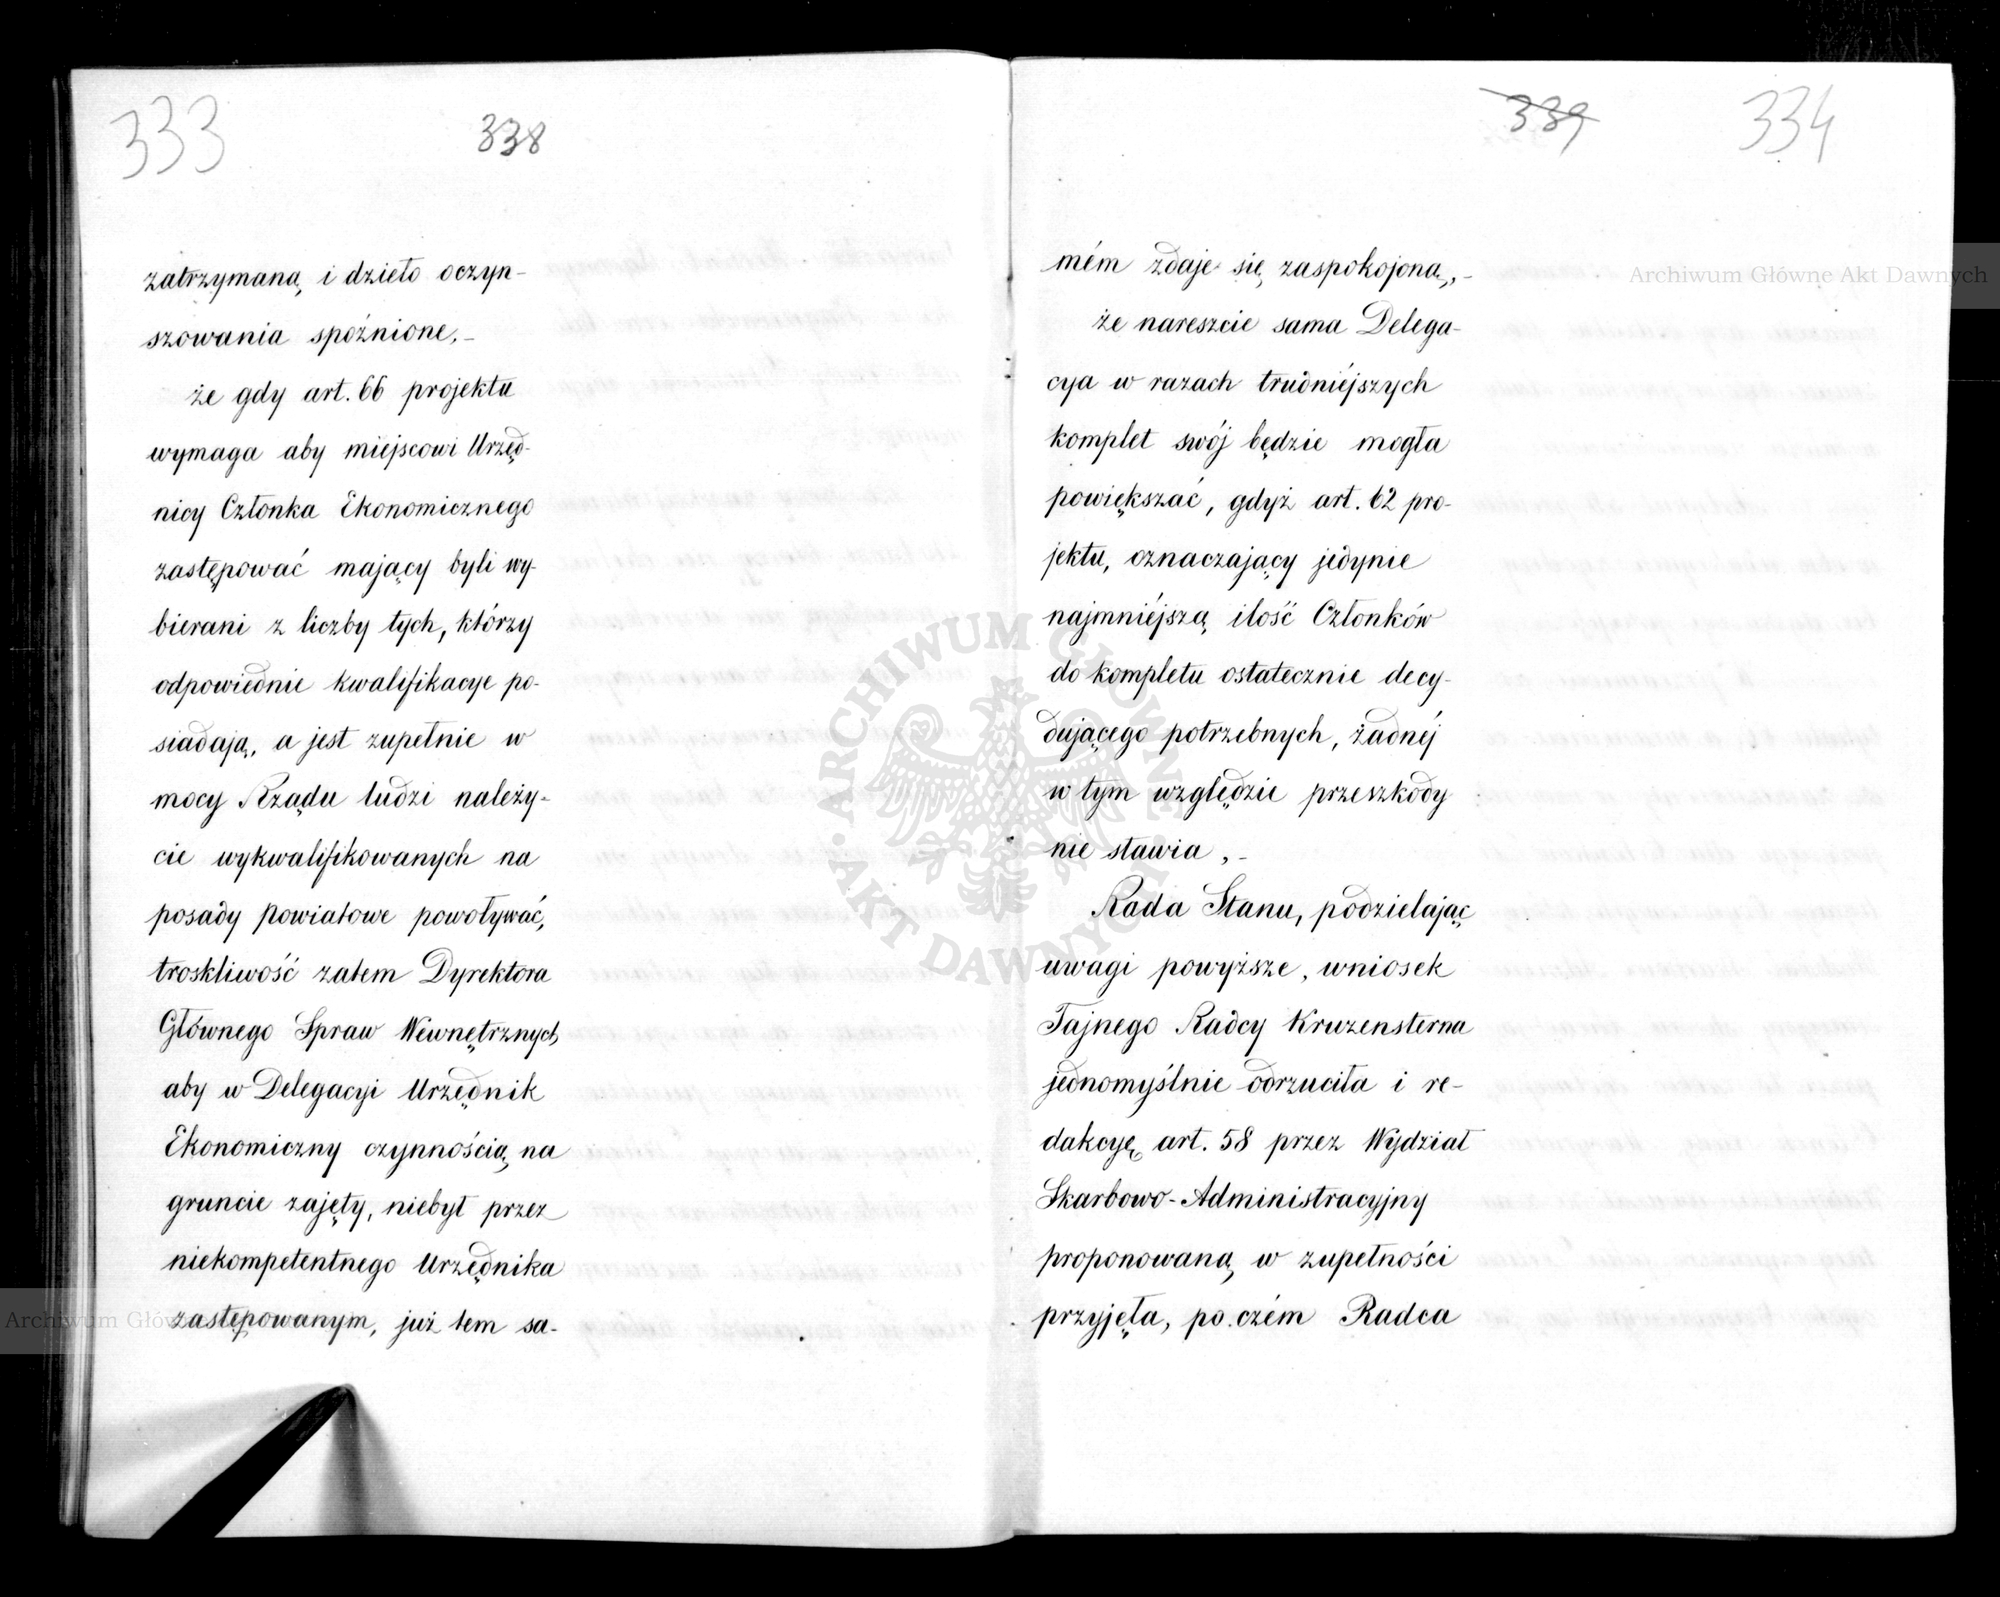 333
338
zatrzymaną i dzieło oczyn-
szowania spóźnione,-
że gdy art. 66 projektu
wymaga aby miejscowi Urzęd-
nicy Członka Ekonomicznego
zastępować mający byli wy-
bierani z liczby tych, którzy
odpowiednie kwalifikacye po-
siadają, a jest zupełnie w
mocy Rządu ludzi należy-
cie wykwalifikowanych na
posady powiatowe powoływać,
troskliwość zatem Dyrektora
Głównego Spraw Wewnętrznych,
aby w Delegacyi Urzędnik
Ekonomiczny czynnością na
gruncie zajęty, niebył przez
niekompetentnego Urzędnika
zastępowanym, już tem sa-
339
334
mém zdaje się zaspokojoną,-
że nareszcie sama Delega-
cya w razach trudniéjszych
komplet swój będzie mogła
powiększać, gdyż art. 62 pro-
jektu, oznaczający jedynie
najmniéjszą ilość Członków
do kompletu ostatecznie decy-
dującego potrzebnych, żadnéj
w tym względzie przeszkody
nie stawia,-
Rada Stanu, podzielając
uwagi powyższe, wniosek
Tajnego Radcy Kruzensterna
jednomyślnie odrzuciła i re-
dakcyę art. 58 przez Wydział
Skarbowo-Administracyjny
proponowaną w zupełności
przyjęła, po czém Radca
Archiwum Główne Akt Dawnych
ARCHIWUM GŁÓWNE AKT DAWNYCH
Archiwum Głów